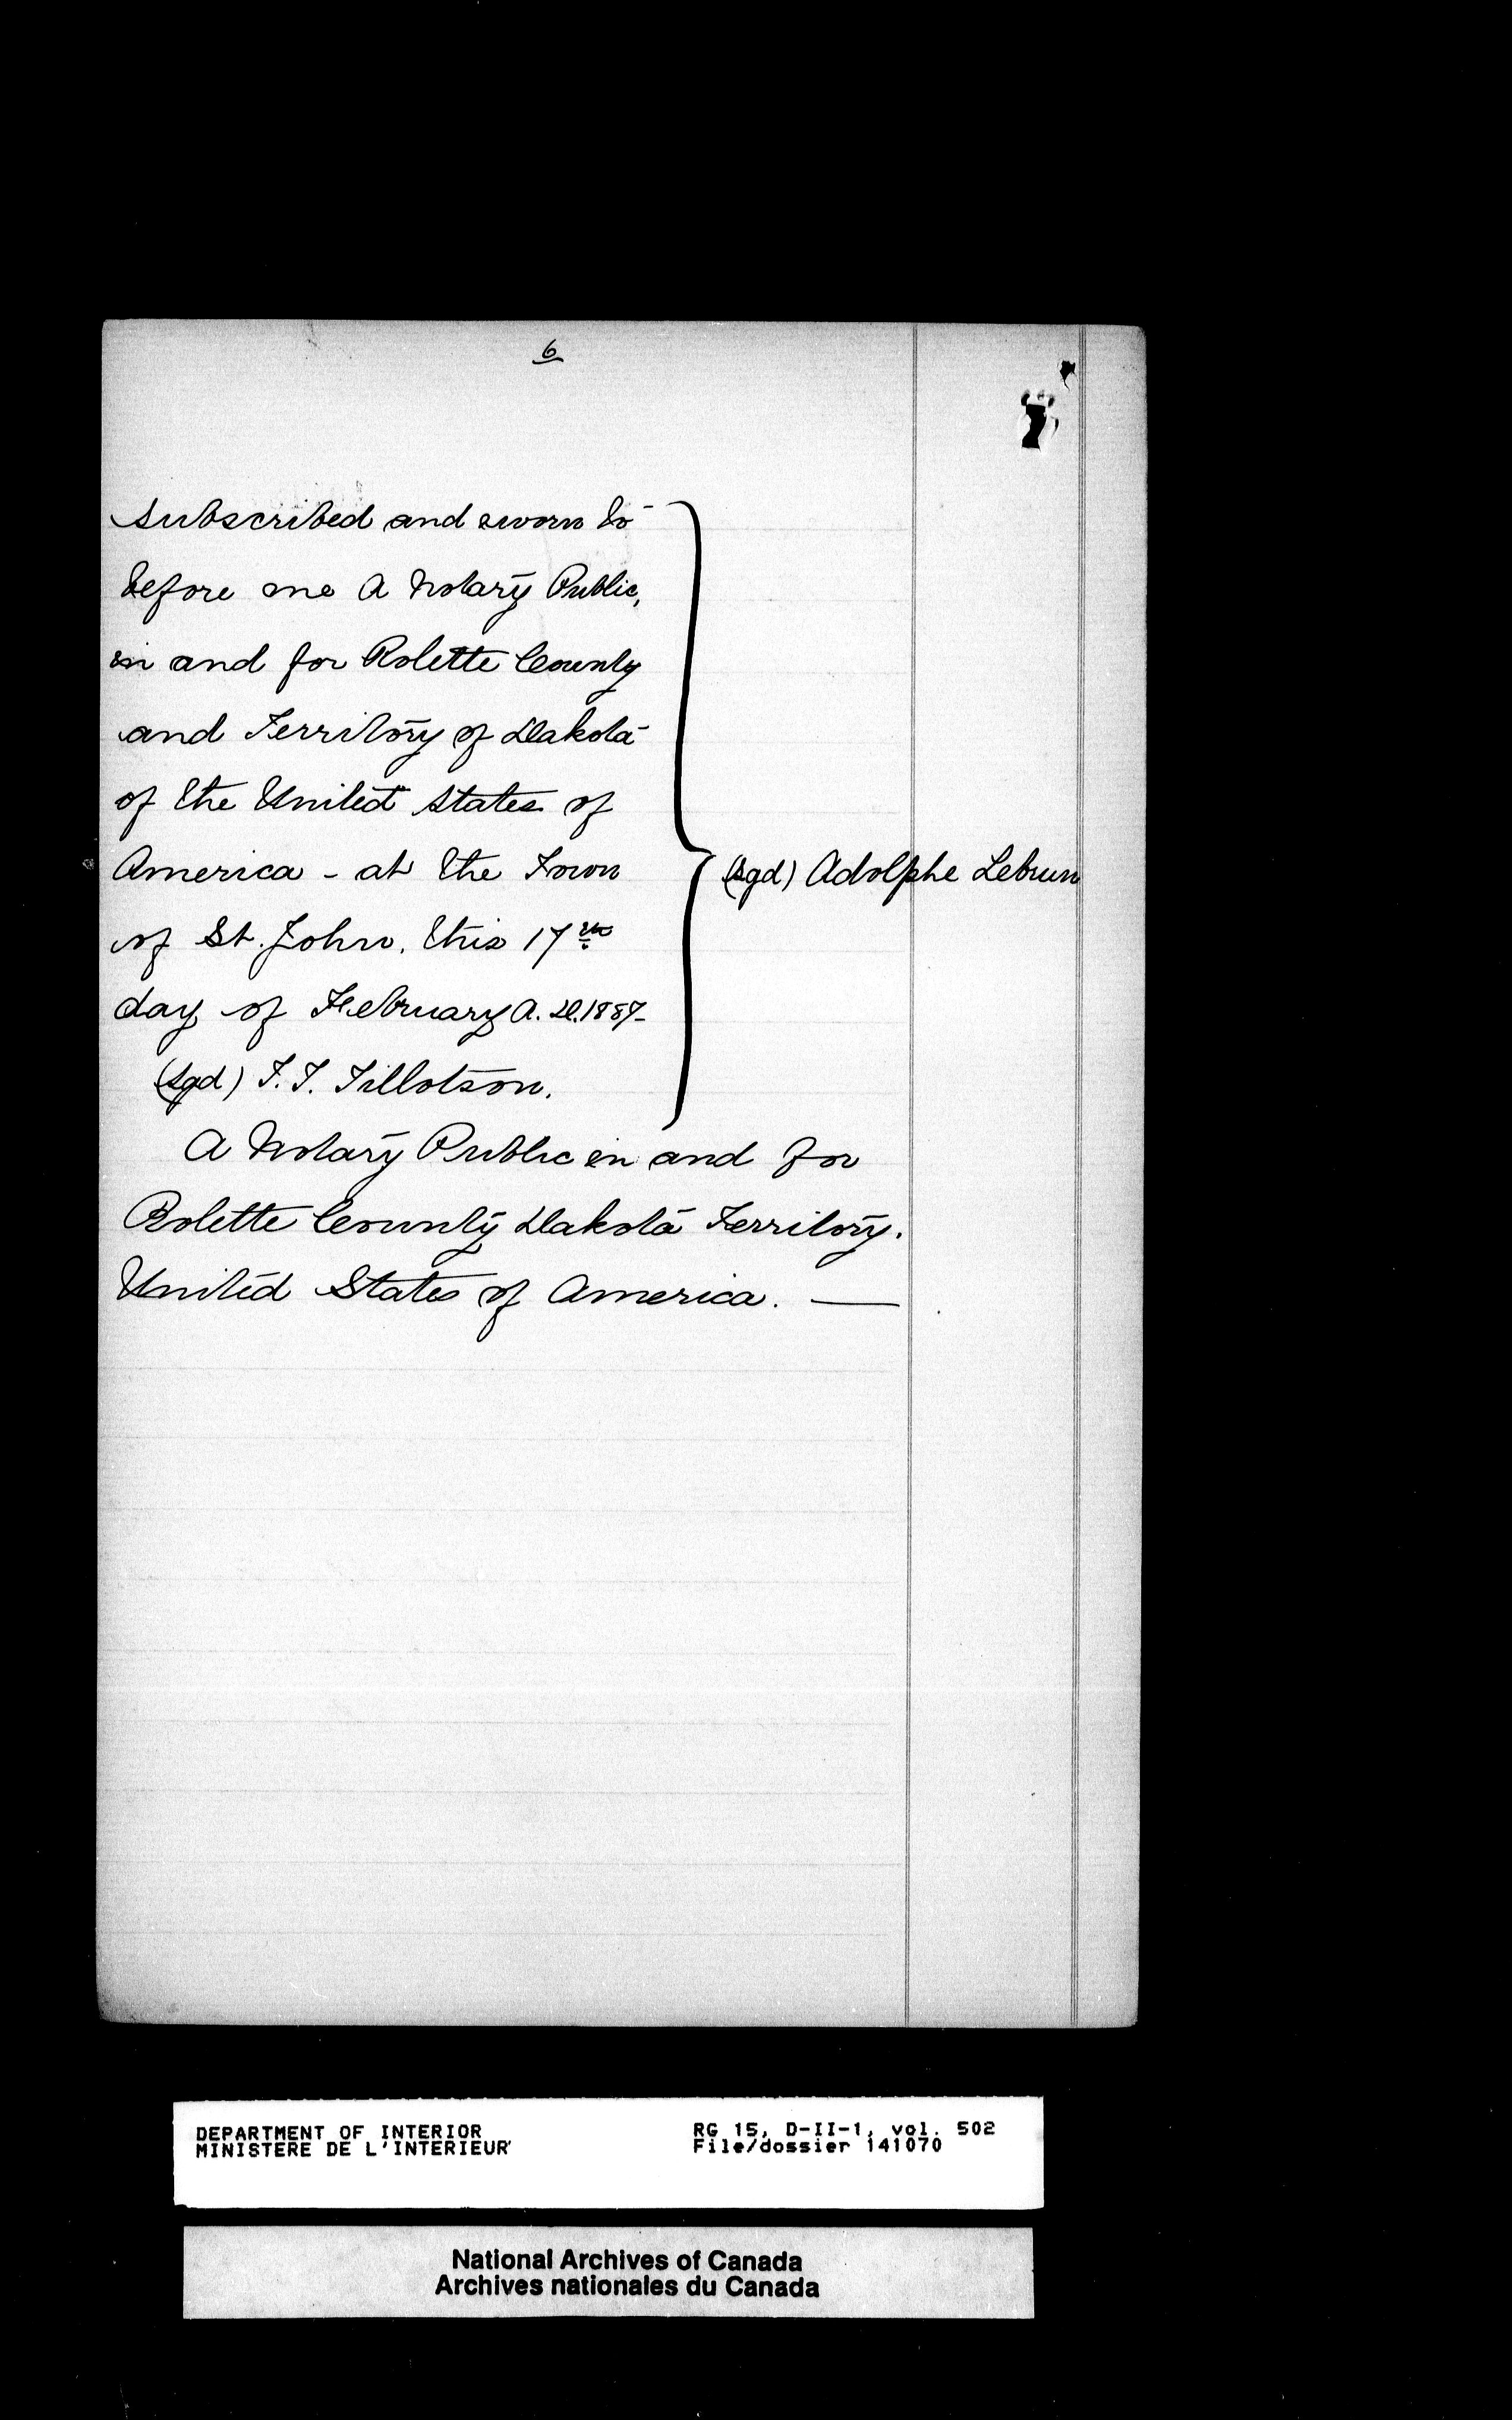 6
Subscribed and sworn to
before me a Notary Public,
in and for Rolette County
and Territory of Dakota
of the United States of
America - at the Town
of St. John, this 17th
day of February A.D. 1887-
(sgd) Adolphe Lebrun
(sgd) F. T. Tillotson.
A Notary Public in and for
Rolette County Dakota Territory.
United States of America. —
DEPARTMENT OF INTERIOR
MINISTERE DE L'INTERIEUR
RG 15, D-II-1, vol. 502
File/dossier 141070
National Archives of Canada
Archives nationales du Canada